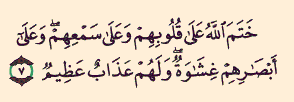 خَتَمَ ٱللَّهُ عَلَىٰ قُلُوبِهِمْ وَعَلَىٰ سَمْعِهِمْ ۖ وَعَلَىٰٓ
أَبْصَـٰرِهِمْ غِشَـٰوَةٌ ۖ وَلَهُمْ عَذَابٌ عَظِيمٌ ٧